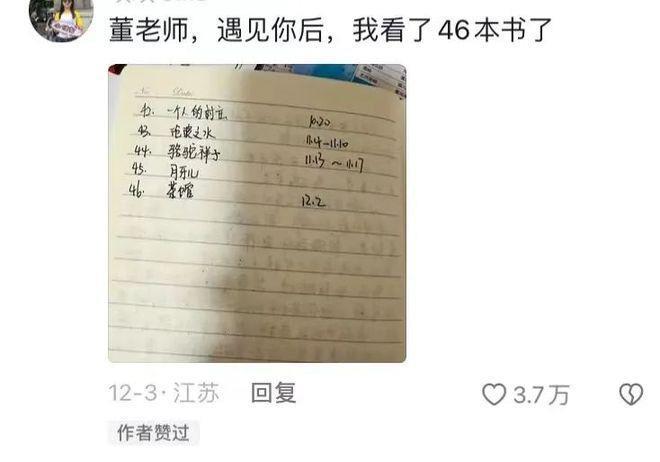 董老师，遇见你后，我看了46本书了
No Date
42. 一个人的村庄 10.20
43. 沱巴之水 11.4-11.10
44. 骆驼祥子 11.13 ~ 11.17
45. 月牙儿
46. 茶馆 12.2
12-3·江苏 回复 3.7万
作者赞过